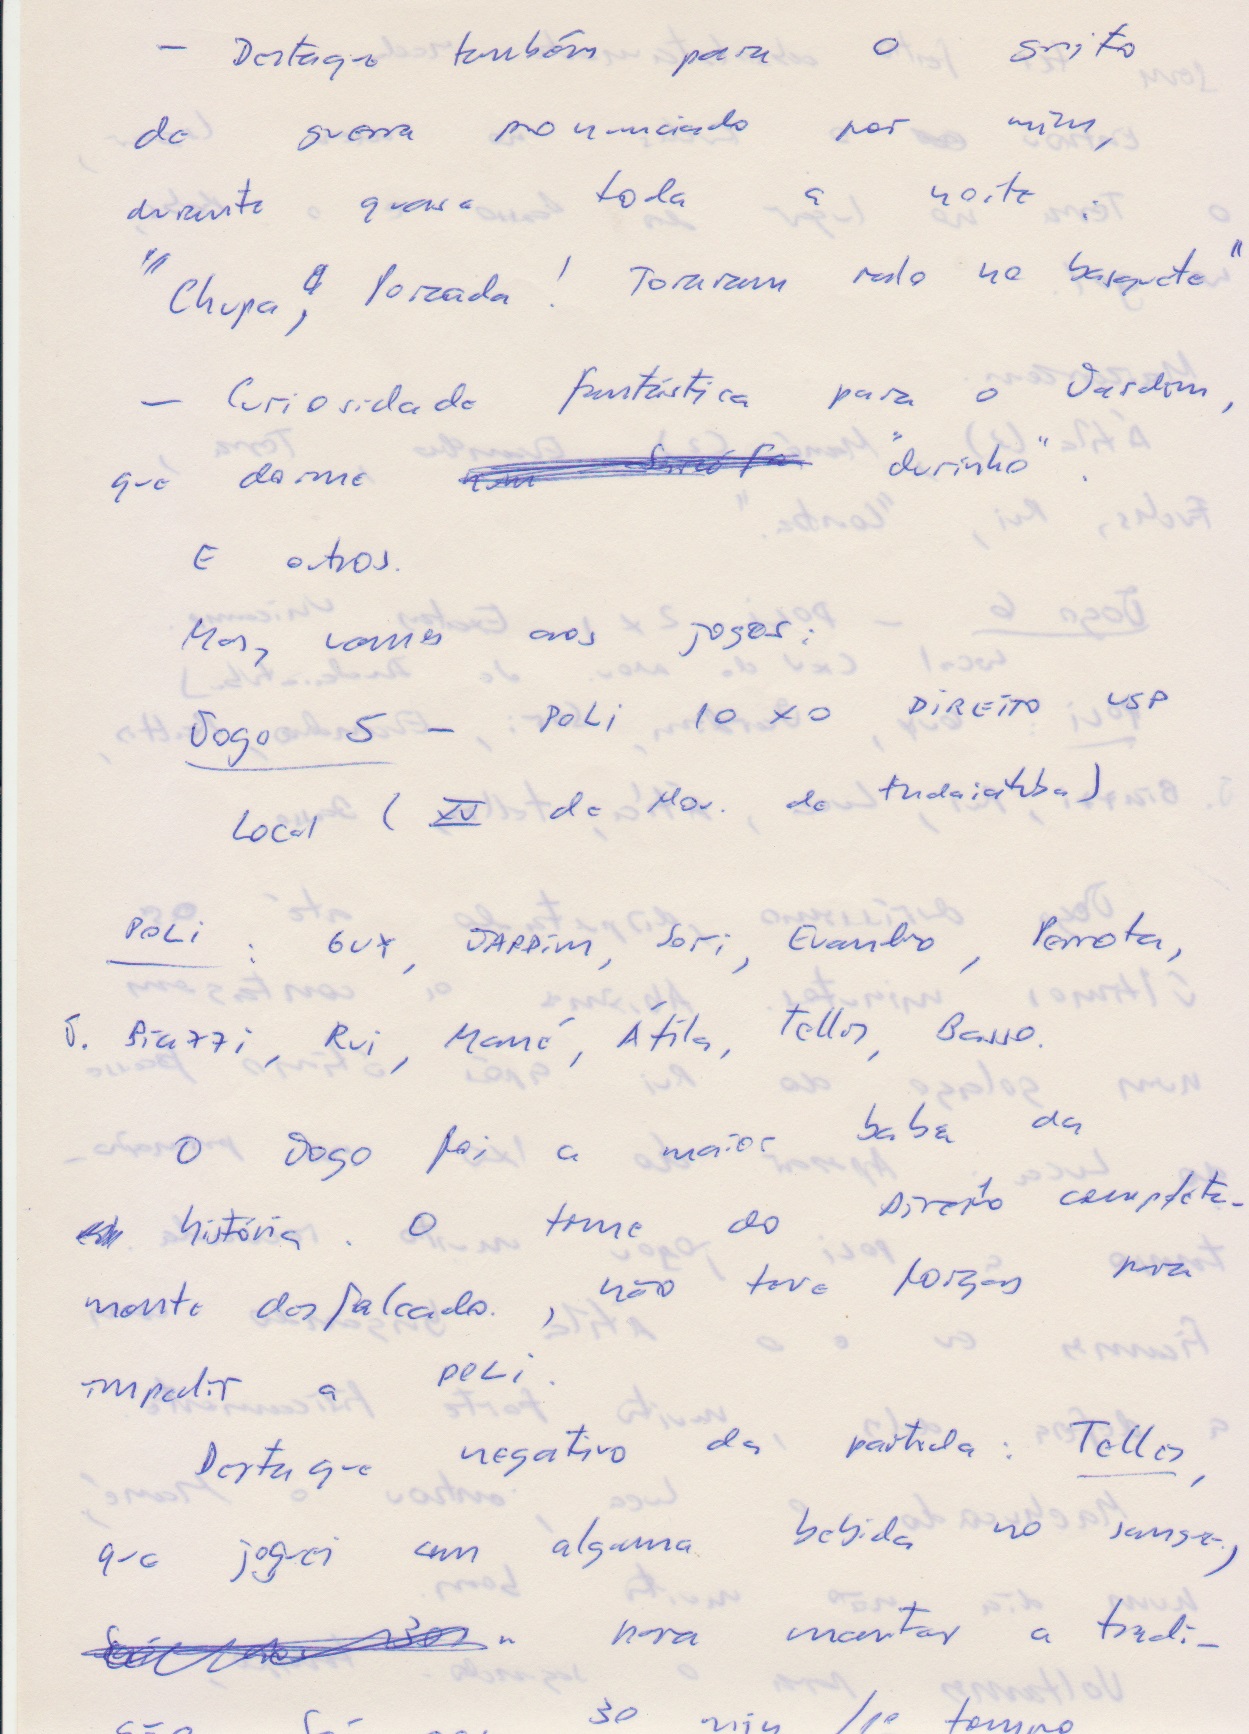 - Destaque também para o grito
de guerra pronunciado por mim,
durante quase toda a noite:
"Chupa, Porcada! Tomaram ralo no basquete"
- Curiosidade fantástica para o Jardim,
que dorme "durinho".
E outros.
Mas, vamos aos jogos:
Jogo 5 - POLI 10 X 0 DIREITO USP
Local (XV de Nov. de Indaiatuba)
POLI: GUX, JARDIM, Sori, Evandro, Perrota,
J. Biazzi, Rui, Mané, Átila, Telles, Basso.
O Jogo foi a maior baba da
história. O time do Direito completa-
mente desfalcado, não teve forças para
impedir a POLI.
Destaque negativo da partida: Telles,
que joguei com alguma bebida no sangue,
para manter a tradi-
ção. Só 30 min /1º tempo